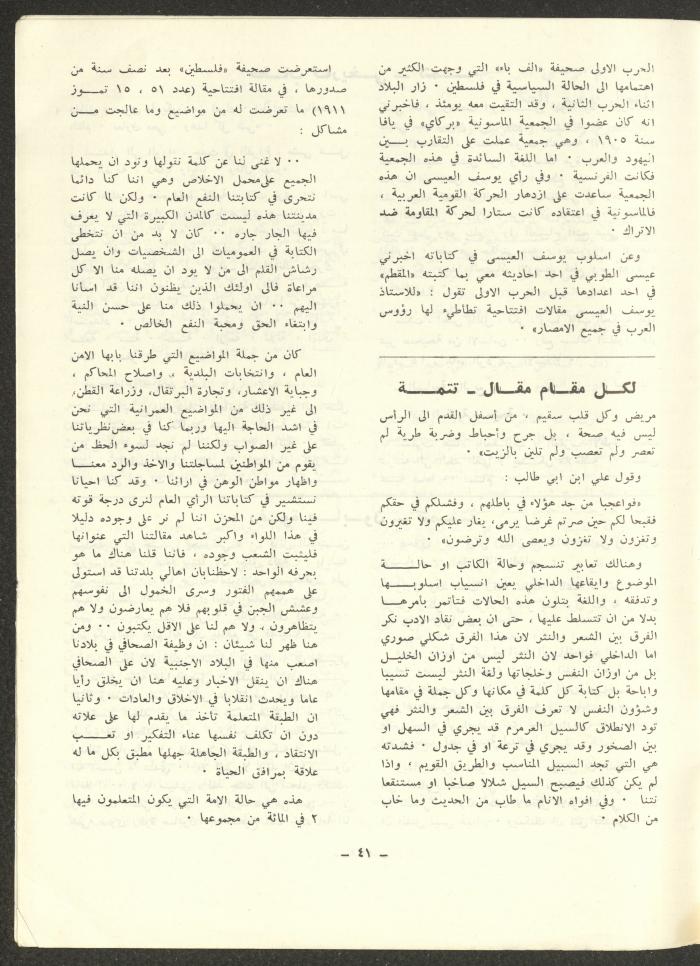 الحرب الاولى صحيفة «الف باء» التي وجهت الكثير من
اهتمامها الى الحالة السياسية في فلسطين ٠ زار البلاد
اثناء الحرب الثانية ، وقد التقيت معه يومئذ ، فاخبرني
انه كان عضوا في الجمعية الماسونية «بركاي» في يافا
سنة ١٩٠٥ ، وهي جمعية عملت على التقارب بــين
اليهود والعرب ٠ اما اللغة السائدة في هذه الجمعية
فكانت الفرنسية ٠ وفي رأي يوسف العيسى ان هذه
الجمعية ساعدت على ازدهار الحركة القومية العربية ،
فالماسونية في اعتقاده كانت ستارا لحركة المقاومة ضد
الاتراك ٠
وعن اسلوب يوسف العيسى في كتاباته اخبرني
عيسى الطوبي في احد احاديثه معي بما كتبته «المقطم»
في احد اعدادها قبل الحرب الاولى تقول : «للاستاذ
يوسف العيسى مقالات افتتاحية تطاطيء لها رؤوس
العرب في جميع الامصار» ٠
لكــل مقــام مقــال ــ تتمــة
مريض وكل قلب سقيم ، من أسفل القدم الى الرأس
ليس فيه صحة ، بل جرح وأحباط وضربة طرية لم
تعصر ولم تعصب ولم تلين بالزيت» ٠
وقول علي ابن ابي طالب :
«فواعجبا من جد هؤلاء في باطلهم ، وفشلكم في حقكم
فقبحا لكم حين صرتم غرضا يرمى، يغار عليكم ولا تغيرون
وتغزون ولا تغزون ويعصى الله وترضون» ٠
وهنالك تعابير تنسجم وحالة الكاتب او حالـــــة
الموضوع وايقاعها الداخلي يعين انسياب اسلوبــــها
وتدفقه ، واللغة يتلون هذه الحالات فتأتمر بأمرهــا
بدلا من ان تتسلط عليها ، حتى ان بعض نقاد الادب نكر
الفرق بين الشعر والنثر لان هذا الفرق شكلي صوري
اما الداخلي فواحد لان النثر ليس من اوزان الخليــل
بل من اوزان النفس وخلجاتها ولغة النثر ليست تسيبا
واباحة بل كتابة كل كلمة في مكانها وكل جملة في مقامها
وشؤون النفس لا تعرف الفرق بين الشعر والنثر فهي
تود الانطلاق كالسيل العرمرم قد يجري في السهل او
بين الصخور وقد يجري في ترعة او في جدول ٠ فشدته
هي التي تجد السبيل المناسب والطريق القويم ، واذا
لم يكن كذلك فيصبح السيل شلالا صاخبا او مستنقعا
نتنا ٠ وفي افواه الانام ما طاب من الحديث وما خاب
من الكلام ٠
استعرضت صحيفة «فلسطين» بعد نصف سنة من
صدورها ، في مقالة افتتاحية (عدد ٥١ ، ١٥ تمـــوز
١٩١١) ما تعرضت له من مواضيع وما عالجت مــن
مشاكل :
٠٠ لا غنى لنا عن كلمة نقولها ونود ان يحملها
الجميع على محمل الاخلاص وهي اننا كنا دائما
نتحرى في كتابتنا النفع العام ٠ ولكن لما كانت
مدينتنا هذه ليست كالمدن الكبيرة التي لا يعرف
فيها الجار جاره ٠٠ كان لا بد من ان نتخطى
الكتابة في العموميات الى الشخصيات وان يصل
رشاش القلم الى من لا يود ان يصله منا الا كل
مراعاة فالى اولئك الذين يظنون اننا قد اسأنا
اليهم ٠٠ ان يحملوا ذلك منا على حسن النية
وابتغاء الحق ومحبة النفع الخالص ٠
كان من جملة المواضيع التي طرقنا بابها الامن
العام ، وانتخابات البلدية ، واصلاح المحاكم ،
وجباية الاعشار، وتجارة البرتقال، وزراعة القطن،
الى غير ذلك من المواضيع العمرانية التي نحن
في اشد الحاجة اليها وربما كنا في بعض نظرياتنا
على غير الصواب ولكننا لم نجد لسوء الحظ من
يقوم من المواطنين لمساجلتنا والاخذ والرد معنــا
واظهار مواطن الوهن في ارائنا ٠ وقد كنا احيانا
نستشير في كتاباتنا الرأي العام لنرى درجة قوته
فينا ولكن من المحزن اننا لم نر على وجوده دليلا
في هذا اللواء واكبر شاهد مقالتنا التي عنوانها
فليثبت الشعب وجوده ، فاننا قلنا هناك ما هو
بحرفه الواحد : لاحظنا بان اهالي بلدتنا قد استولى
على هممهم الفتور وسرى الخمول الى نفوسهم
وعشش الجبن في قلوبهم فلا هم يعارضون ولا هم
يتظاهرون ، ولا هم لنا على الاقل يكتبون ٠٠ ومن
هنا ظهر لنا شيئان : ان وظيفة الصحافي في بلادنا
اصعب منها في البلاد الاجنبية لان على الصحافي
هناك ان ينقل الاخبار وعليه هنا ان يخلق رأيا
عاما ويحدث انقلابا في الاخلاق والعادات ٠ وثانيا
ان الطبقة المتعلمة تأخذ ما يقدم لها على علاته
دون ان تكلف نفسها عناء التفكير او تعــــب
الانتقاد ، والطبقة الجاهلة جهلها مطبق بكل ما له
علاقة بمرافق الحياة ٠
هذه هي حالة الامة التي يكون المتعلمون فيها
٢ في المائة من مجموعها ٠
ــ ٤١ ــ